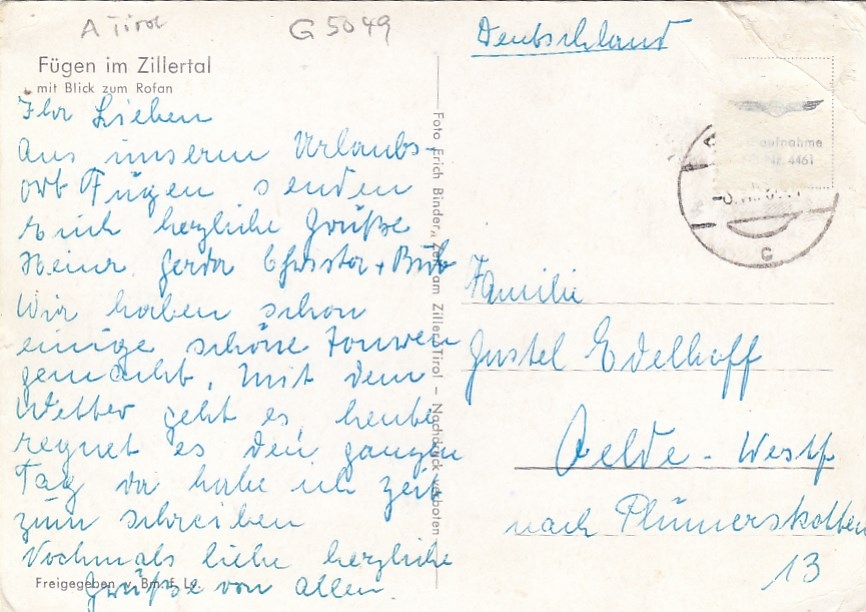 A Tirol
G 5049
Deutschland
Fügen im Zillertal
mit Blick zum Rofan
Ihr Lieben
Aus unserm Urlaubs-
ort Fügen senden
Euch herzliche Grüße
Heinr. Gerda Christa + Bub
Wir haben schon
einige schöne Touren
gemacht. Mit dem
Wetter geht es, heute
regnet es den ganzen
Tag da habe ich Zeit
zum schreiben
Nochmals liebe herzliche
Grüße von Allen
Freigegeben v. Bm. f. Lv.
Foto Erich Binder, Zell am Ziller, Tirol – Nachdruck verboten
aufnahme
4461
c
Familie
Gustel Edelhoff
Oelde - Westf
nach Plümerskotten
13